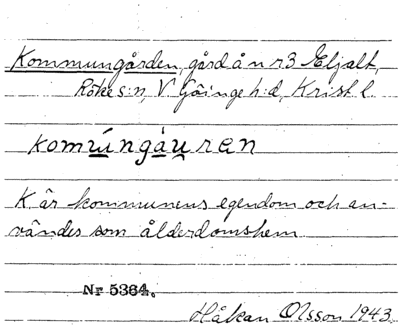 Kommungården, gård å nr 3 Eljalt,
Röke s:n, V. Göinge h:d, Krist. l.
komúngáuren
K. är kommunens egendom och an-
vändes som ålderdomshem.
Nr 5364.
Håkan Olsson 1943.